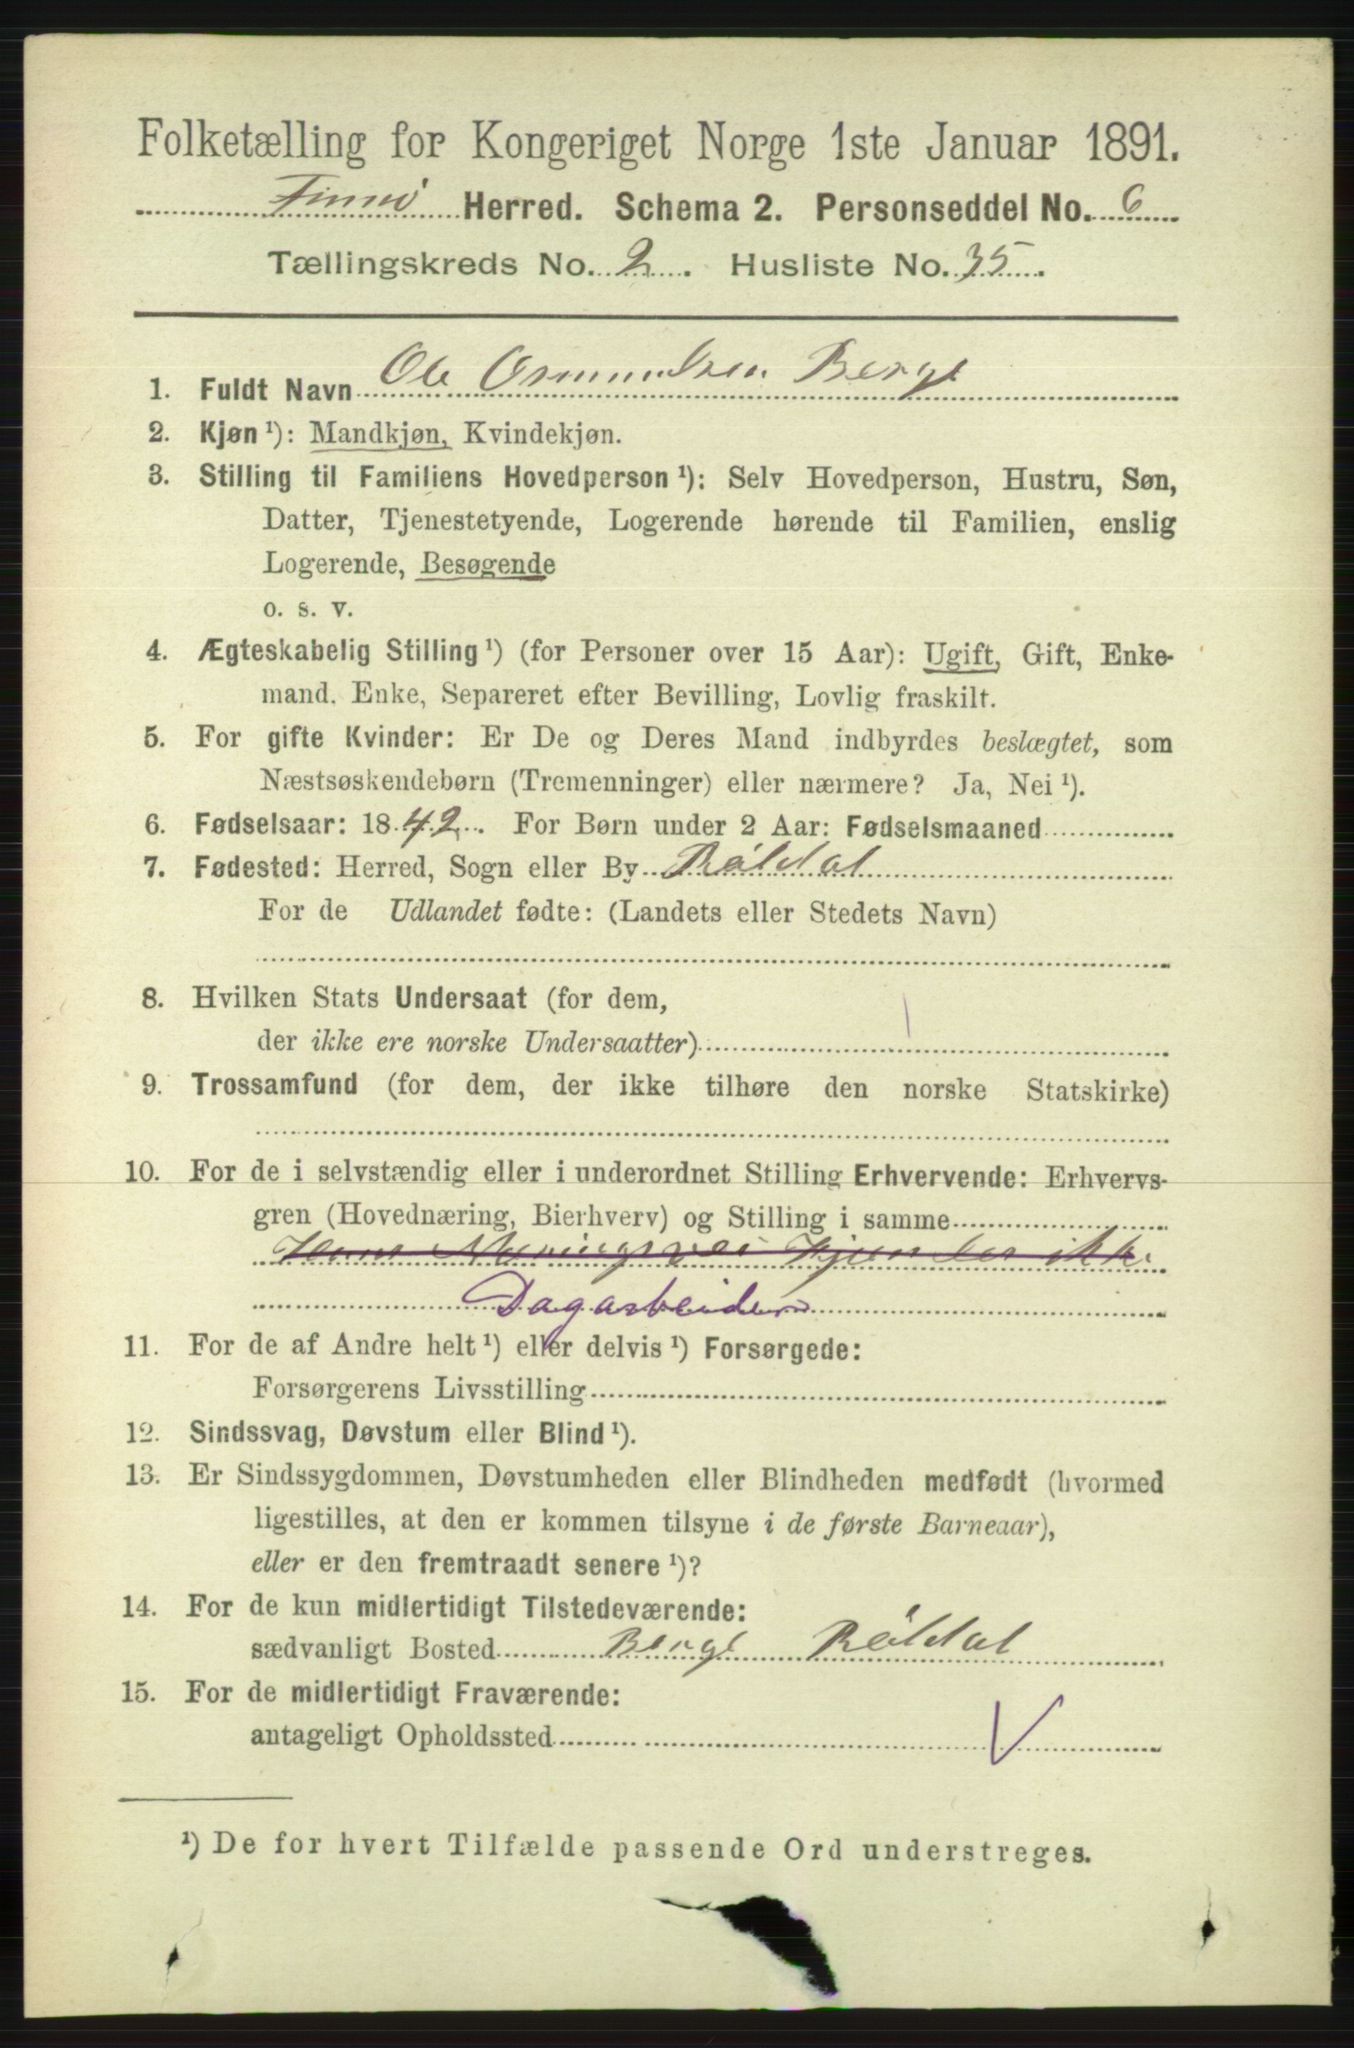 Folketælling for Kongeriget Norge 1ste Januar 1891.
Finnø Herred. Schema 2. Personseddel No. 6
Tællingskreds No. 2. Husliste No. 35.
1. Fuldt Navn Ole Osmundsen Berge
2. Kjøn ¹): Mandkjøn, Kvindekjøn.
3. Stilling til Familiens Hovedperson ¹): Selv Hovedperson, Hustru, Søn,
Datter, Tjenestetyende, Logerende hørende til Familien, enslig
Logerende, Besøgende
o. s. v.
4. Ægteskabelig Stilling ¹) (for Personer over 15 Aar): Ugift, Gift, Enke-
mand. Enke, Separeret efter Bevilling, Lovlig fraskilt.
5. For gifte Kvinder: Er De og Deres Mand indbyrdes beslægtet, som
Næstsøskendebørn (Tremenninger) eller nærmere? Ja, Nei ¹).
6. Fødselsaar: 1842. For Børn under 2 Aar: Fødselsmaaned
7. Fødested: Herred, Sogn eller By Røldal
For de Udlandet fødte: (Landets eller Stedets Navn)
8. Hvilken Stats Undersaat (for dem,
der ikke ere norske Undersaatter)
9. Trossamfund (for dem, der ikke tilhøre den norske Statskirke)
10. For de i selvstændig eller i underordnet Stilling Erhvervende: Erhvervs-
gren (Hovednæring, Bierhverv) og Stilling i samme
Hans Næringsvei Kjendes ikke
Dagarbeider
11. For de af Andre helt ¹) eller delvis ¹) Forsørgede:
Forsørgerens Livsstilling
12. Sindssvag, Døvstum eller Blind ¹).
13. Er Sindssygdommen, Døvstumheden eller Blindheden medfødt (hvormed
ligestilles, at den er kommen tilsyne i de første Barneaar),
eller er den fremtraadt senere ¹)?
14. For de kun midlertidigt Tilstedeværende:
sædvanligt Bosted Berge Røldal
15. For de midlertidigt Fraværende:
antageligt Opholdssted
¹) De for hvert Tilfælde passende Ord understreges.